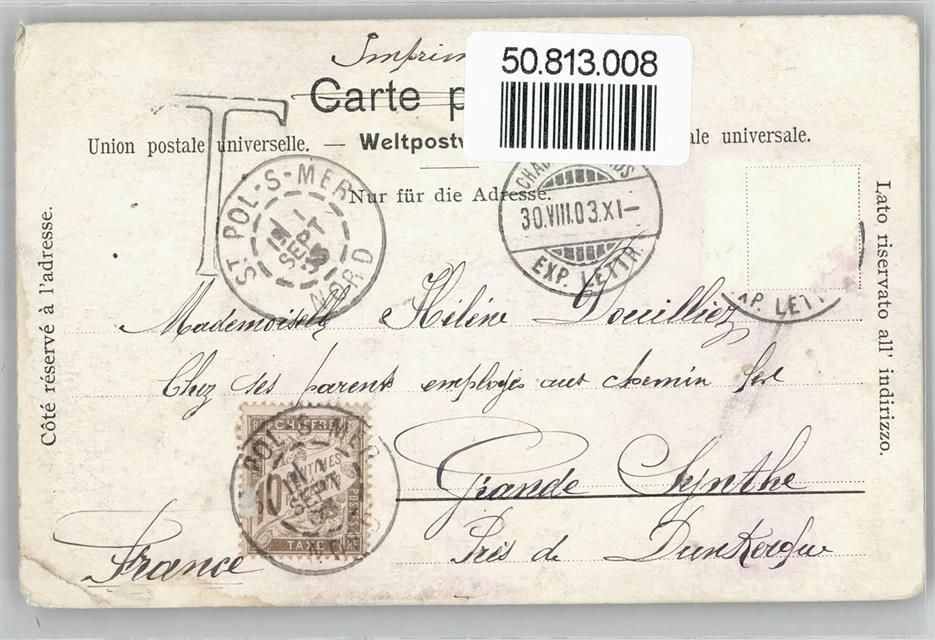 Imprim
50.813.008
Carte p
Union postale universelle. — Weltpostv ale universale.
Nur für die Adresse.
T
ST POL-S-MER
SEPT
03
NORD
CHAU DS
30.VIII.03.XI-
EXP. LETTR.
XP. LETT
Côté réservé à l'adresse.
Lato riservato all' indirizzo.
Mademoiselle Hélène Douilliez
Chez ses parent employés aux chemin fer
Grande Synthe
Près de Dunkerque
France
CHIFFRE
10 CENTIMES
TAXE
POL-S-MER
SEPT